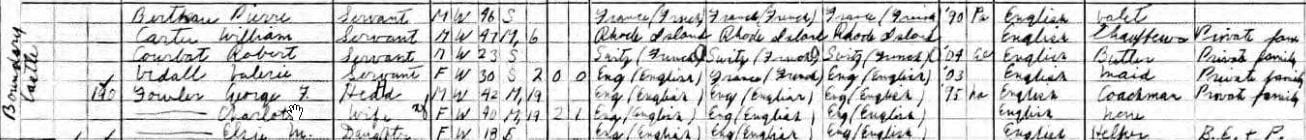 Boundary Castle
Berthau Pierre Servant M W 46 S France (French) France (French) France (French) '90 Pa English valet
Carter William Servant M W 47 M 6 Rhode Island Rhode Island Rhode Island English Chauffeur Private fam
Courbat Robert Servant M W 23 S (French) (French) (French) '04 English Butler Private family
Vidall Valerie Servant F W 30 S 2 0 0 Eng (English) France (French) Eng (English) '03 English maid Private family
Fowler George F. Head M W 42 M 19 Eng (English) Eng (English) Eng (English) '95 na English Coachman Private family
Charlotte Wife F W 40 M 19 2 1 Eng (English) Eng (English) Eng (English) English none
Elsie M. Daughter F W 18 S English Helper